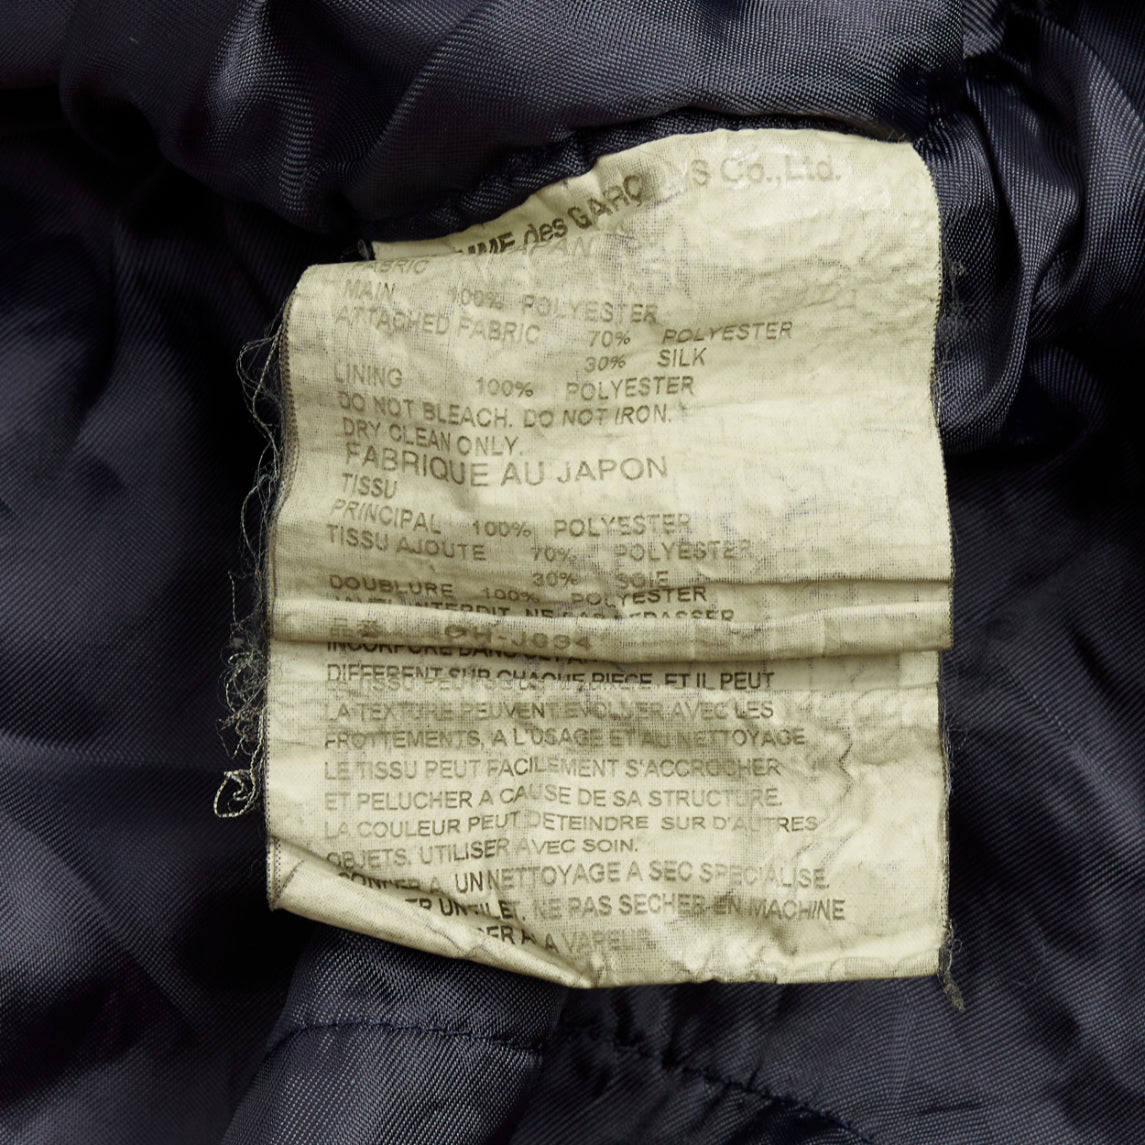 des GARÇ S Co.,Ltd.
FABRIC
MAIN 100% POLYESTER
ATTACHED FABRIC 70% POLYESTER
30% SILK
LINING 100% POLYESTER
DO NOT BLEACH. DO NOT IRON.
DRY CLEAN ONLY.
FABRIQUE AU JAPON
TISSU
PRINCIPAL 100% POLYESTER
TISSU AJOUTE 70% POLYESTER
30% SOIE
DOUBLURE 100% POLYESTER
INTERDIT. NE PAS REPASSER
品番 GH-J034
DIFFERENT SUR CHAQUE PIECE, ET IL PEUT
LA TEXTURE PEUVENT EVOLUER AVEC LES
FROTTEMENTS, A L'USAGE ET AU NETTOYAGE
LE TISSU PEUT FACILEMENT S'ACCROCHER
ET PELUCHER A CAUSE DE SA STRUCTURE.
LA COULEUR PEUT DETEINDRE SUR D'AUTRES
OBJETS. UTILISER AVEC SOIN.
CONFER A UN NETTOYAGE A SEC SPECIALISE.
UN FILET. NE PAS SECHER EN MACHINE
A VAPEUR